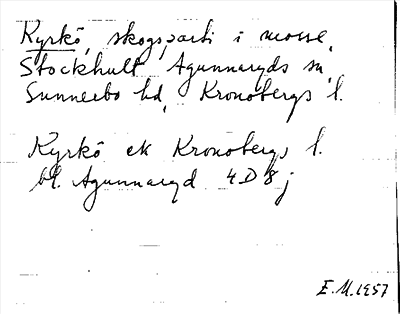 Kyrkö, skogsparti i mosse,
Stockhult, Agunnaryds sn,
Sunnerbo hd, Kronobergs l.
Kyrkö ek Kronobergs l.
bl. Agunnaryd 4D8j
E.M.1957